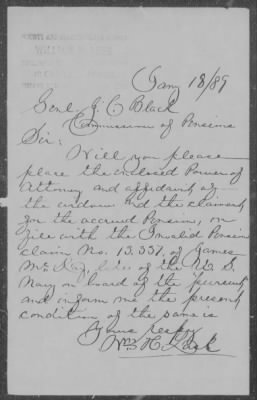 Jany 18/89
Genl. J. C. Black
Commissioner of Pensions
Sir:
Will you please
place the enclosed Power of
Attorney and affidavit of
the widow and the claimant
for the accrued Pension, on
file with the Invalid Pension
claim No. 13.337, of James
Mc late of the U. S.
Navy on board of the
and inform me the present
condition of the same is
Yours respy
Wm H.